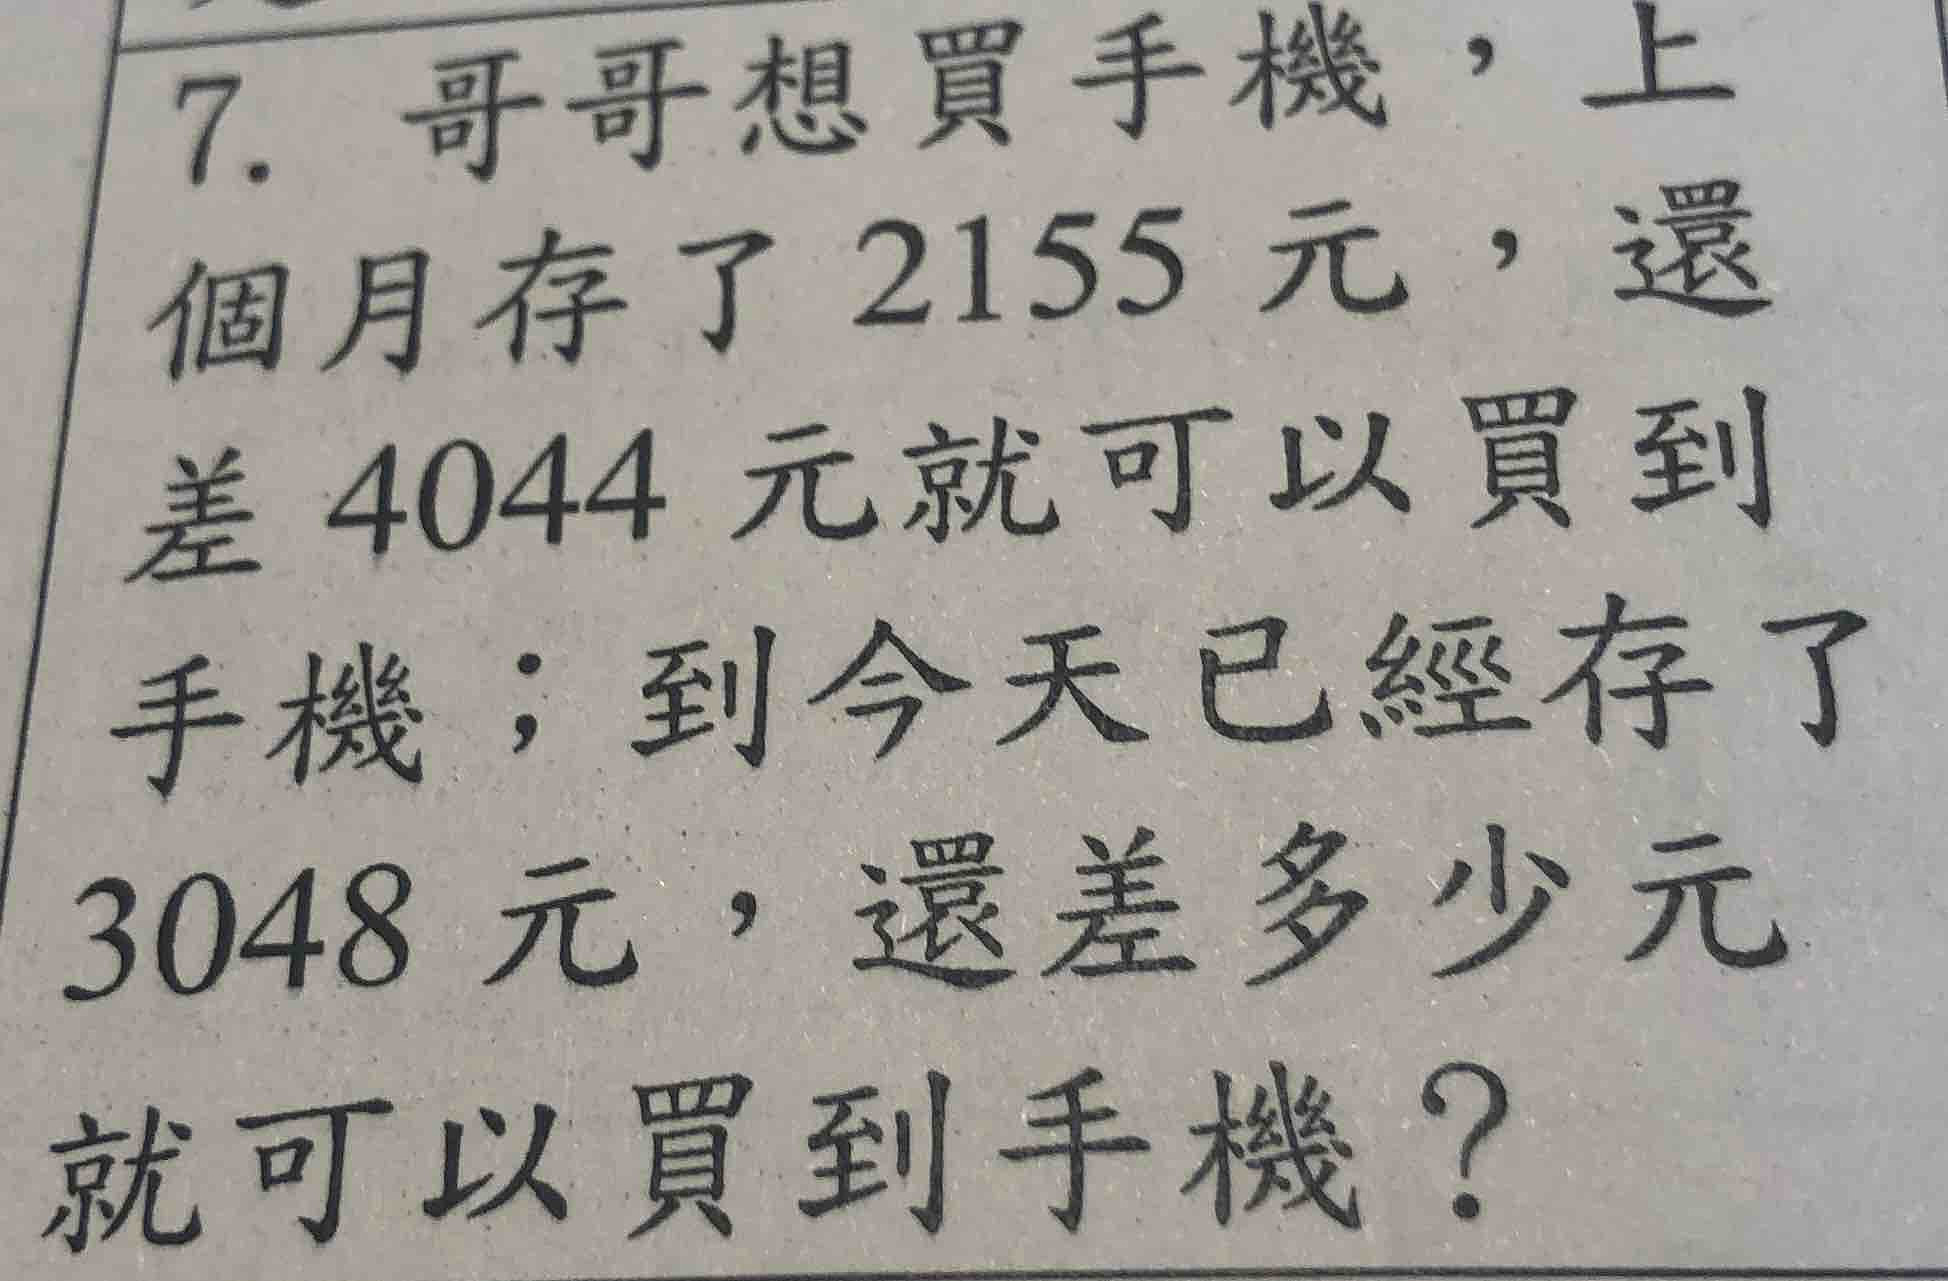 7. 哥哥想買手機，上
個月存了 2155 元，還
差 4044 元就可以買到
手機；到今天已經存了
3048 元，還差多少元
就可以買到手機？